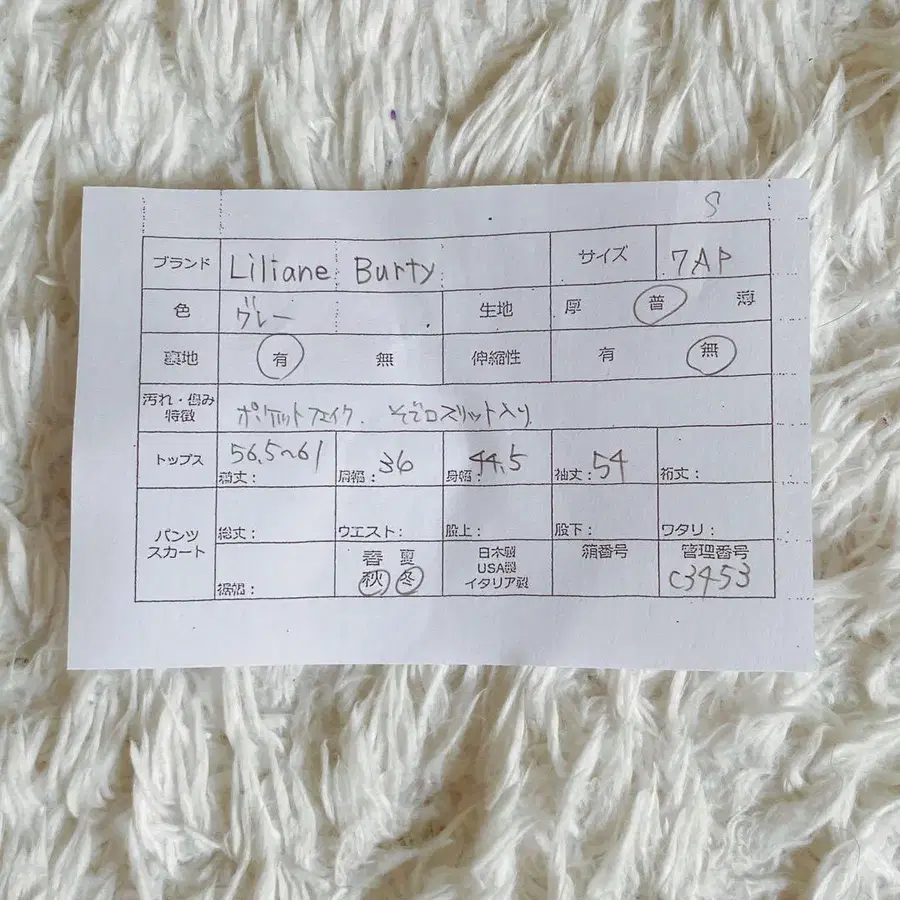 S
ブランド Liliane Burty サイズ 7AP
色 グレー 生地 厚 普 薄
裏地 有 無 伸縮性 有 無
汚れ・傷み
特徴 ポケットフェイク、そで口スリット入り
トップス 56.5〜61 着丈： 36 肩幅： 44.5 身幅： 54 袖丈： 裄丈：
パンツ
スカート 総丈： ウエスト： 股上： 股下： ワタリ：
裾幅： 春 夏 秋 冬 日本製 USA製 イタリア製 箱番号 管理番号 C3453